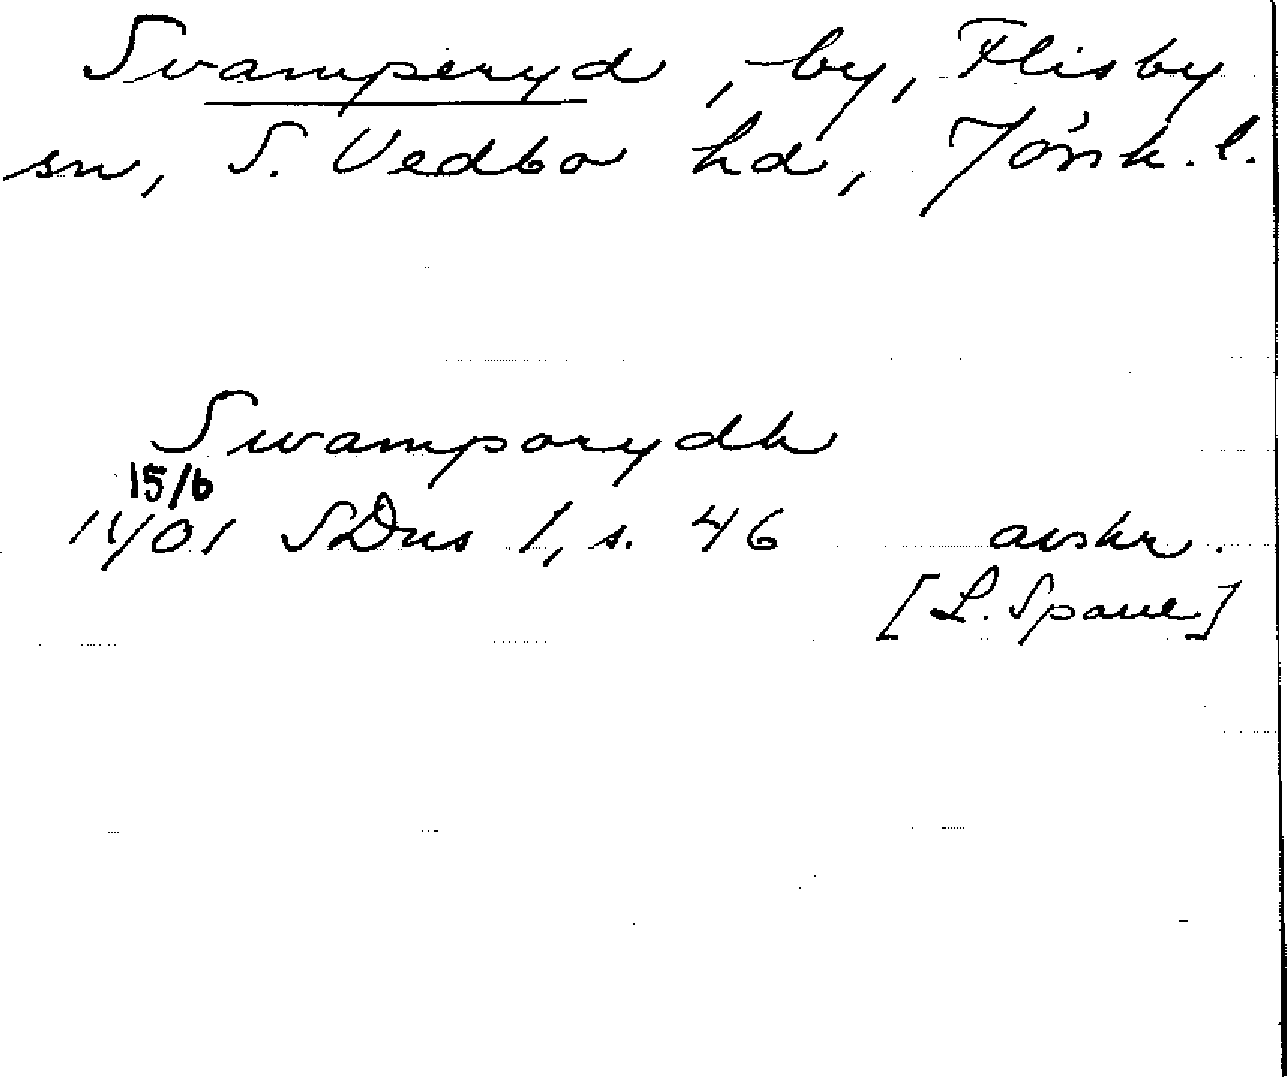 Svamperyd, by, Flisby
sn, S. Vedbo hd, Jönk. l.
Swamporydh
15/6
1401 SDns 1, s. 46 avskr.
[L. Spaue]